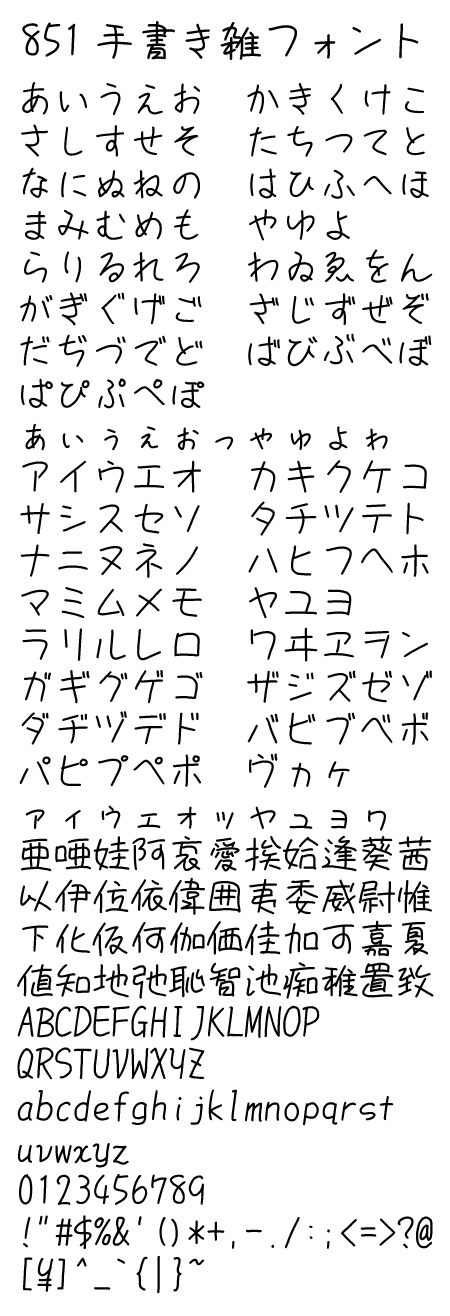 851 手書き雑フォント
あいうえお かきくけこ
さしすせそ たちつてと
なにぬねの はひふへほ
まみむめも やゆよ
らりるれろ わゐゑをん
がぎぐげご ざじずぜぞ
だぢづでど ばびぶべぼ
ぱぴぷぺぽ
ぁぃぅぇぉっゃゅょゎ
アイウエオ カキクケコ
サシスセソ タチツテト
ナニヌネノ ハヒフヘホ
マミムメモ ヤユヨ
ラリルレロ ワヰヱヲン
ガギグゲゴ ザジズゼゾ
ダヂヅデド バビブベボ
パピプペポ ヴヵヶ
ァィゥェォッャュョヮ
亜唖娃阿哀愛挨姶逢葵茜
以伊位依偉囲夷委威尉惟
下化仮何伽価佳加可嘉夏
値知地弛恥智池痴稚置致
ABCDEFGHIJKLMNOP
QRSTUVWXYZ
abcdefghijklmnopqrst
uvwxyz
0123456789
!"#$%&'()*+,-./:;<=>?@
[¥]^_`{|}~